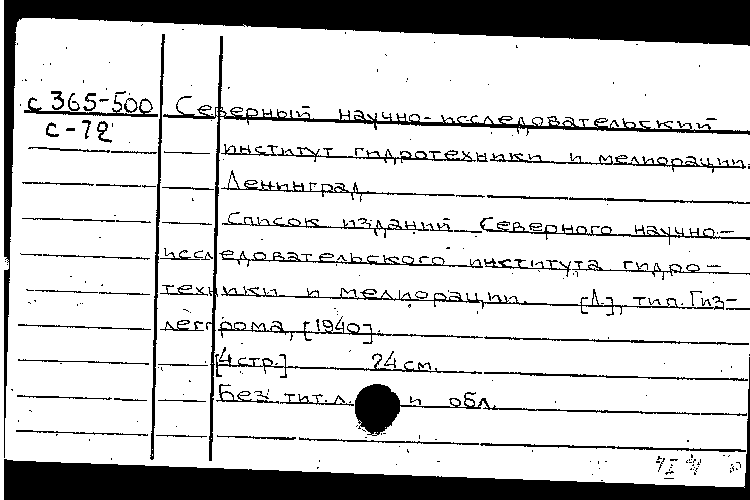 с 365-500 Северный научно-исследовательский
с-72
институт гидротехники и мелиорации.
Ленинград.
Список изданий Северного научно-
исследовательского института гидро-
техники и мелиорации. [Л.], тип. Гиз-
легпрома, [1940].
[4 стр.] 24 см.
Без тит. л. и обл.